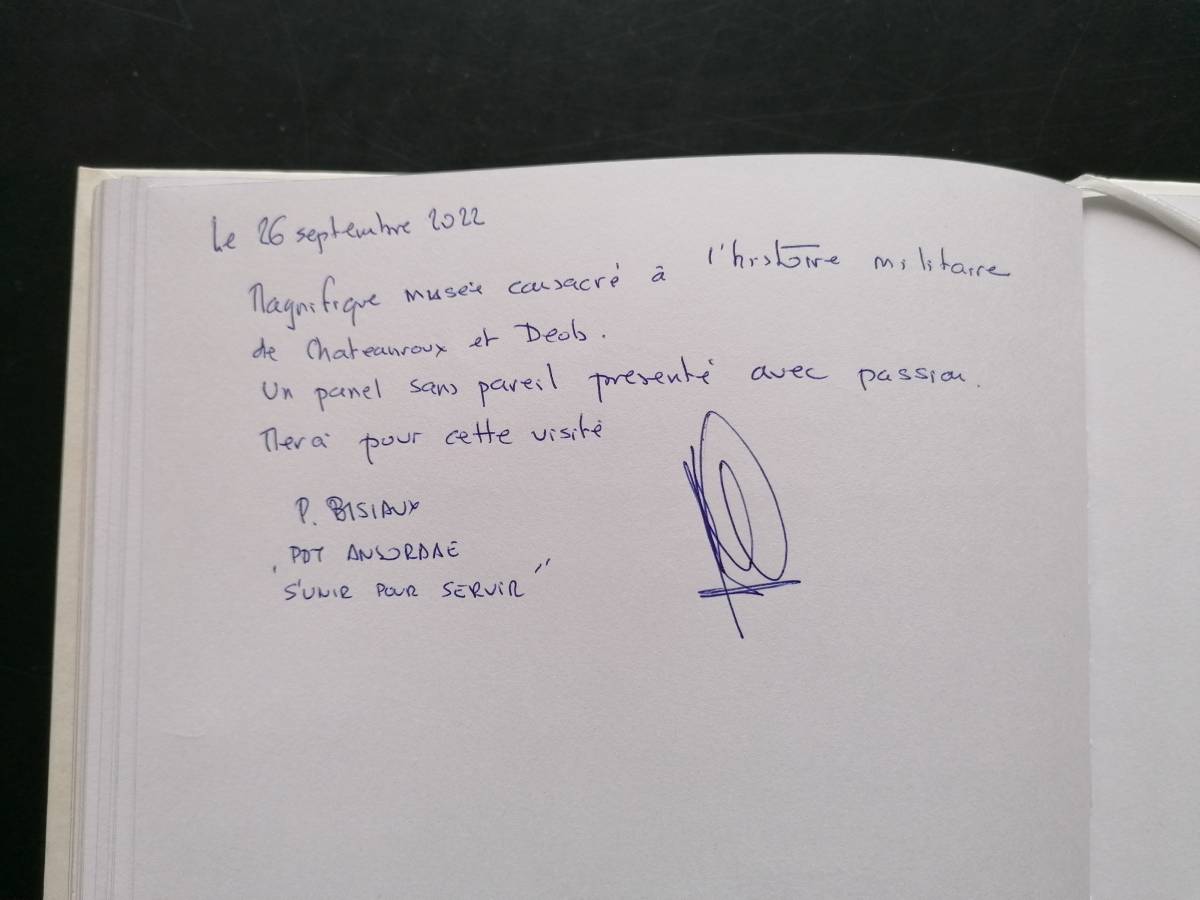 Le 26 septembre 2022
Magnifique musée consacré à l'histoire militaire
de Chateauroux et Deols.
Un panel sans pareil presenté avec passion.
Merci pour cette visite
P. BISIAUX
PDT ANSORAAE
"S'UNIR POUR SERVIR"